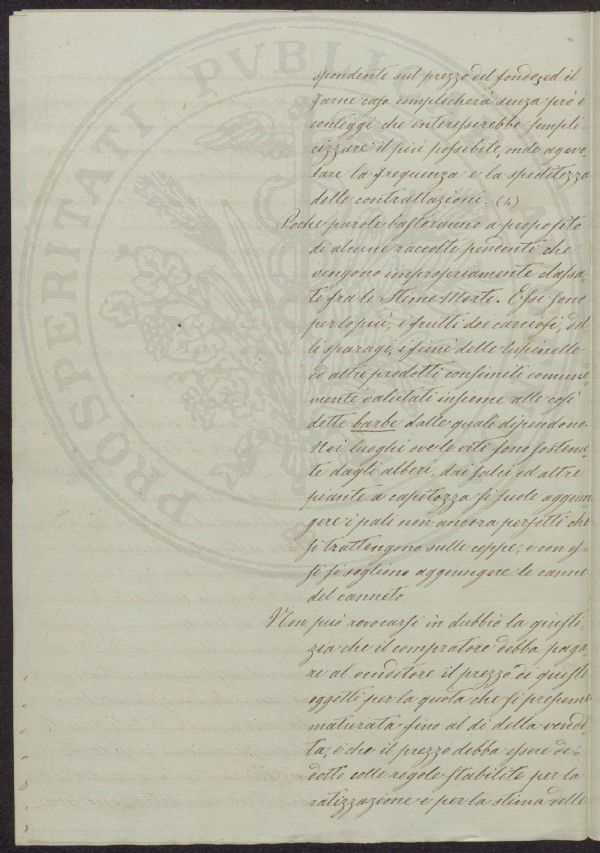 spondente sul prezzo del fondo; ed il
farne caso complicherà senza prò i
conteggi che interesserebbe sempli-
cizzare il più possibile, onde agevo-
lare la frequenza e la speditezza
delle contrattazioni. (4)
Poche parole basteranno a proposito
di alcune raccolte pendenti che
vengono impropriamente classa-
te fra le Stime Morte. Esse sono
per lo più, i frutti dei carciofi, del-
li sparagi, i fieni delle lupinelle
ed altri prodotti consimili comune-
mente valutati insieme alle così
dette barbe dalle quali dipendono.
Nei luoghi ove le viti sono sostenu-
te dagli alberi, dai salci ed altre
piante a capitozza si suole aggiun-
gere i pali non ancora perfetti che
si trattengono sulle ceppe; e con es-
si si sogliono aggiungere le canne
del canneto
Non può revocarsi in dubbio la giusti-
zia che il compratore debba paga-
re al venditore il prezzo di questi
oggetti per la quota che si presume
maturata fino al dì della vendi-
ta; e che il prezzo debba essere de-
dotto colle regole stabilite per la
ratizzazione e per la stima delle
PROSPERITATI PVBLICAE